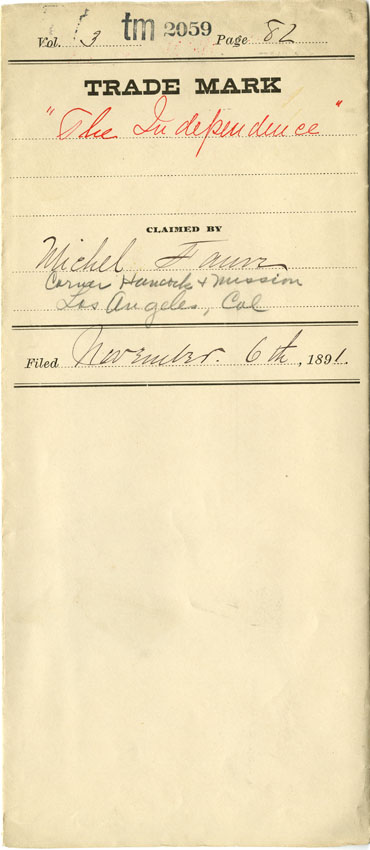 Vol. 3 tm 2059 Page 82
TRADE MARK
"The Independence"
CLAIMED BY
Michel
Corner Hancock & Mission
Los Angeles, Cal
Filed November 6th, 1891.